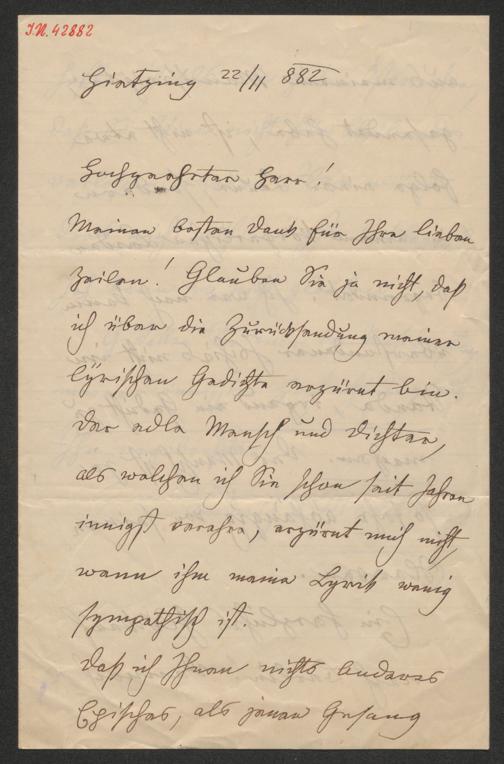 I.N. 42882
Hietzing 22/11 882
Hochgeehrter Herr!
Meinen besten Dank für Ihre lieben
Zeilen! Glauben Sie ja nicht, daß
ich über die Zurücksendung meiner
lÿrischen Gedichte erzürnt bin.
Der edle Mensch und Dichter,
als welchen ich Sie schon seit Jahren
innigst verehre, erzürnt mich nicht,
wenn ihm meine Lyrik wenig
sympathisch ist.
Daß ich Ihnen nichts Anderes
Episches, als jenen Gesang